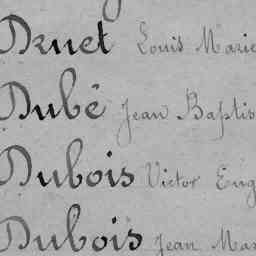 Druet Louis Marie
Dubé Jean Baptis
Dubois Victor Eug
Dubois Jean Mar